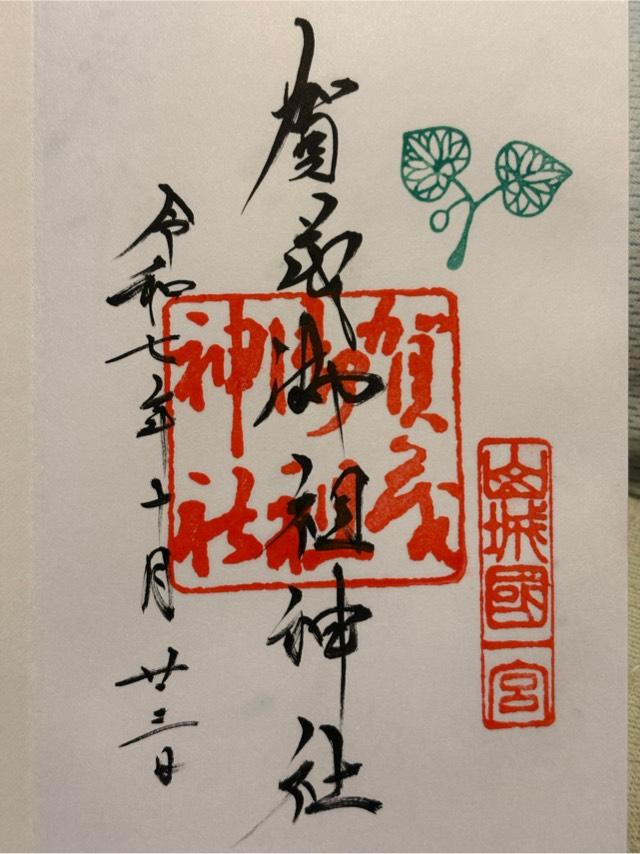 山城國一宮
賀茂御祖神社
賀茂
御祖
神社
令和七年十月廿三日